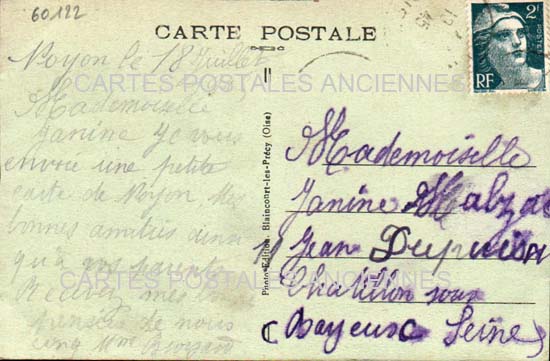 60122
CARTE POSTALE
2F
POSTES
RF
Noyon le 18 Juillet
CARTES POSTALES ANCIENNES
Mademoiselle
Janine Je vous
envoie une petite
carte de Noyon, Mes
bonnes amitiés ainsi
qu'à vos parents
Recevez mes
pensées de nous
cinq Mme
Photo-Edition, Blaincourt-les-Précy (Oise)
Mademoiselle
Janine
Jean
Chatillon sous
Bayeux Seine
CARTES POSTALES ANCIENNES